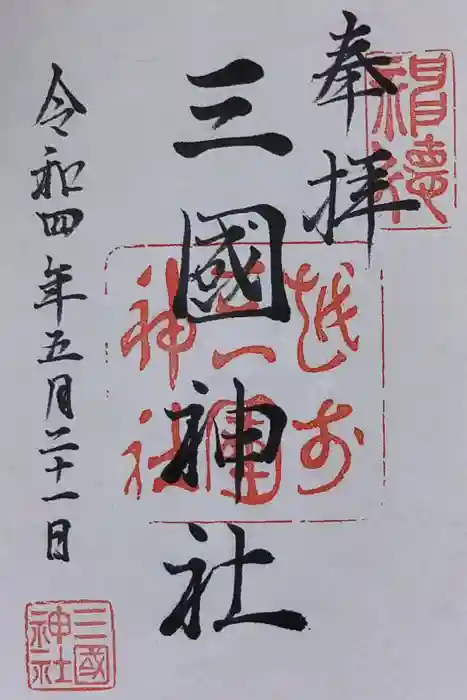 奉拝
三國神社
令和四年五月二十一日
越前
三国
神社
三國
神社